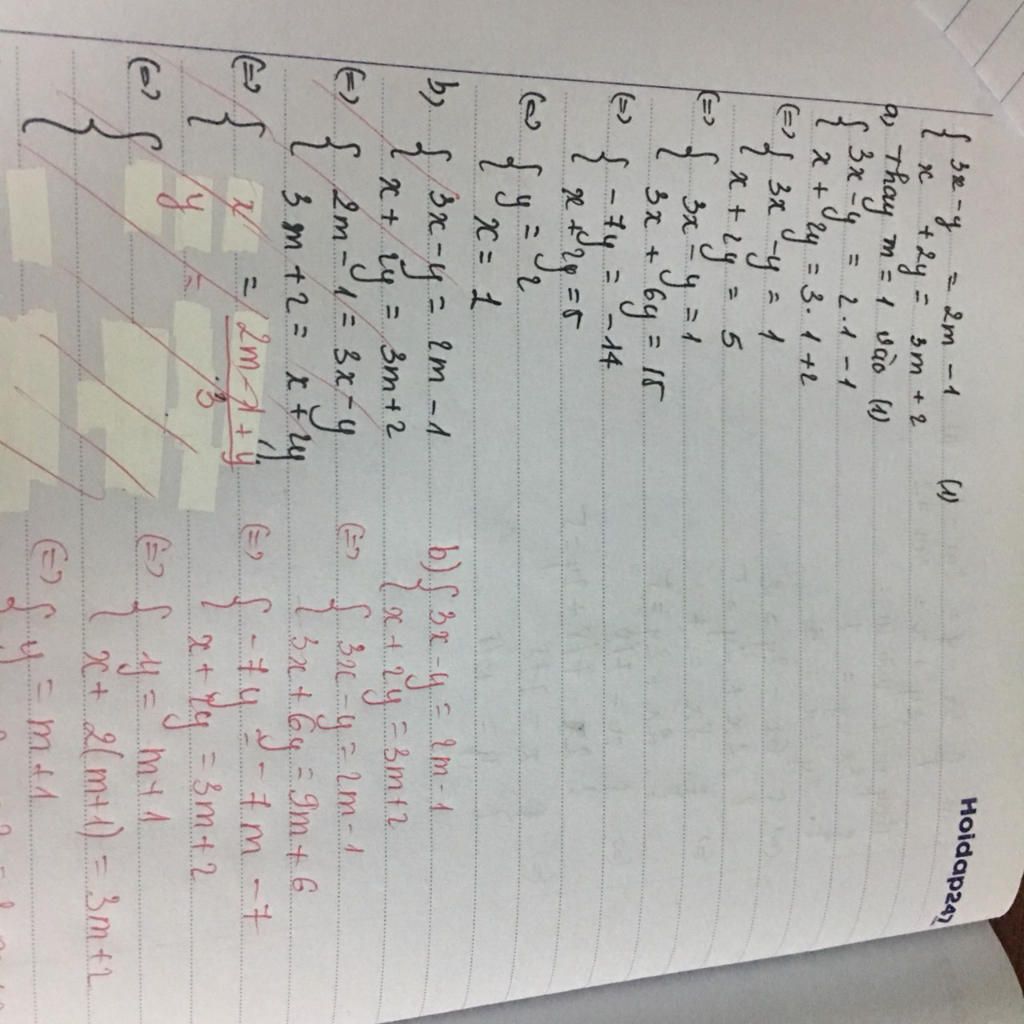 Hoidap247
{ 3x - y = 2m - 1 (1)
x + 2y = 3m + 2
a, Thay m = 1 vào (1)
{ 3x - y = 2.1 - 1
x + 2y = 3.1 + 2
(=) { 3x - y = 1
x + 2y = 5
(=) { 3x - y = 1
3x + 6y = 15
(=) { -7y = -14
x + 2y = 5
(=) { y = 2
x = 1
b, { 3x - y = 2m - 1
x + 2y = 3m + 2
(=) { 2m - 1 = 3x - y
3m + 2 = x + 2y
(=) { x = 2m - 1 + y
3
y =
(=) {
{
b) { 3x - y = 2m - 1
x + 2y = 3m + 2
(=) { 3x - y = 2m - 1
3x + 6y = 9m + 6
(=) { -7y = -7m - 7
x + 2y = 3m + 2
(=) { y = m + 1
x + 2(m+1) = 3m + 2
(=) { y = m + 1